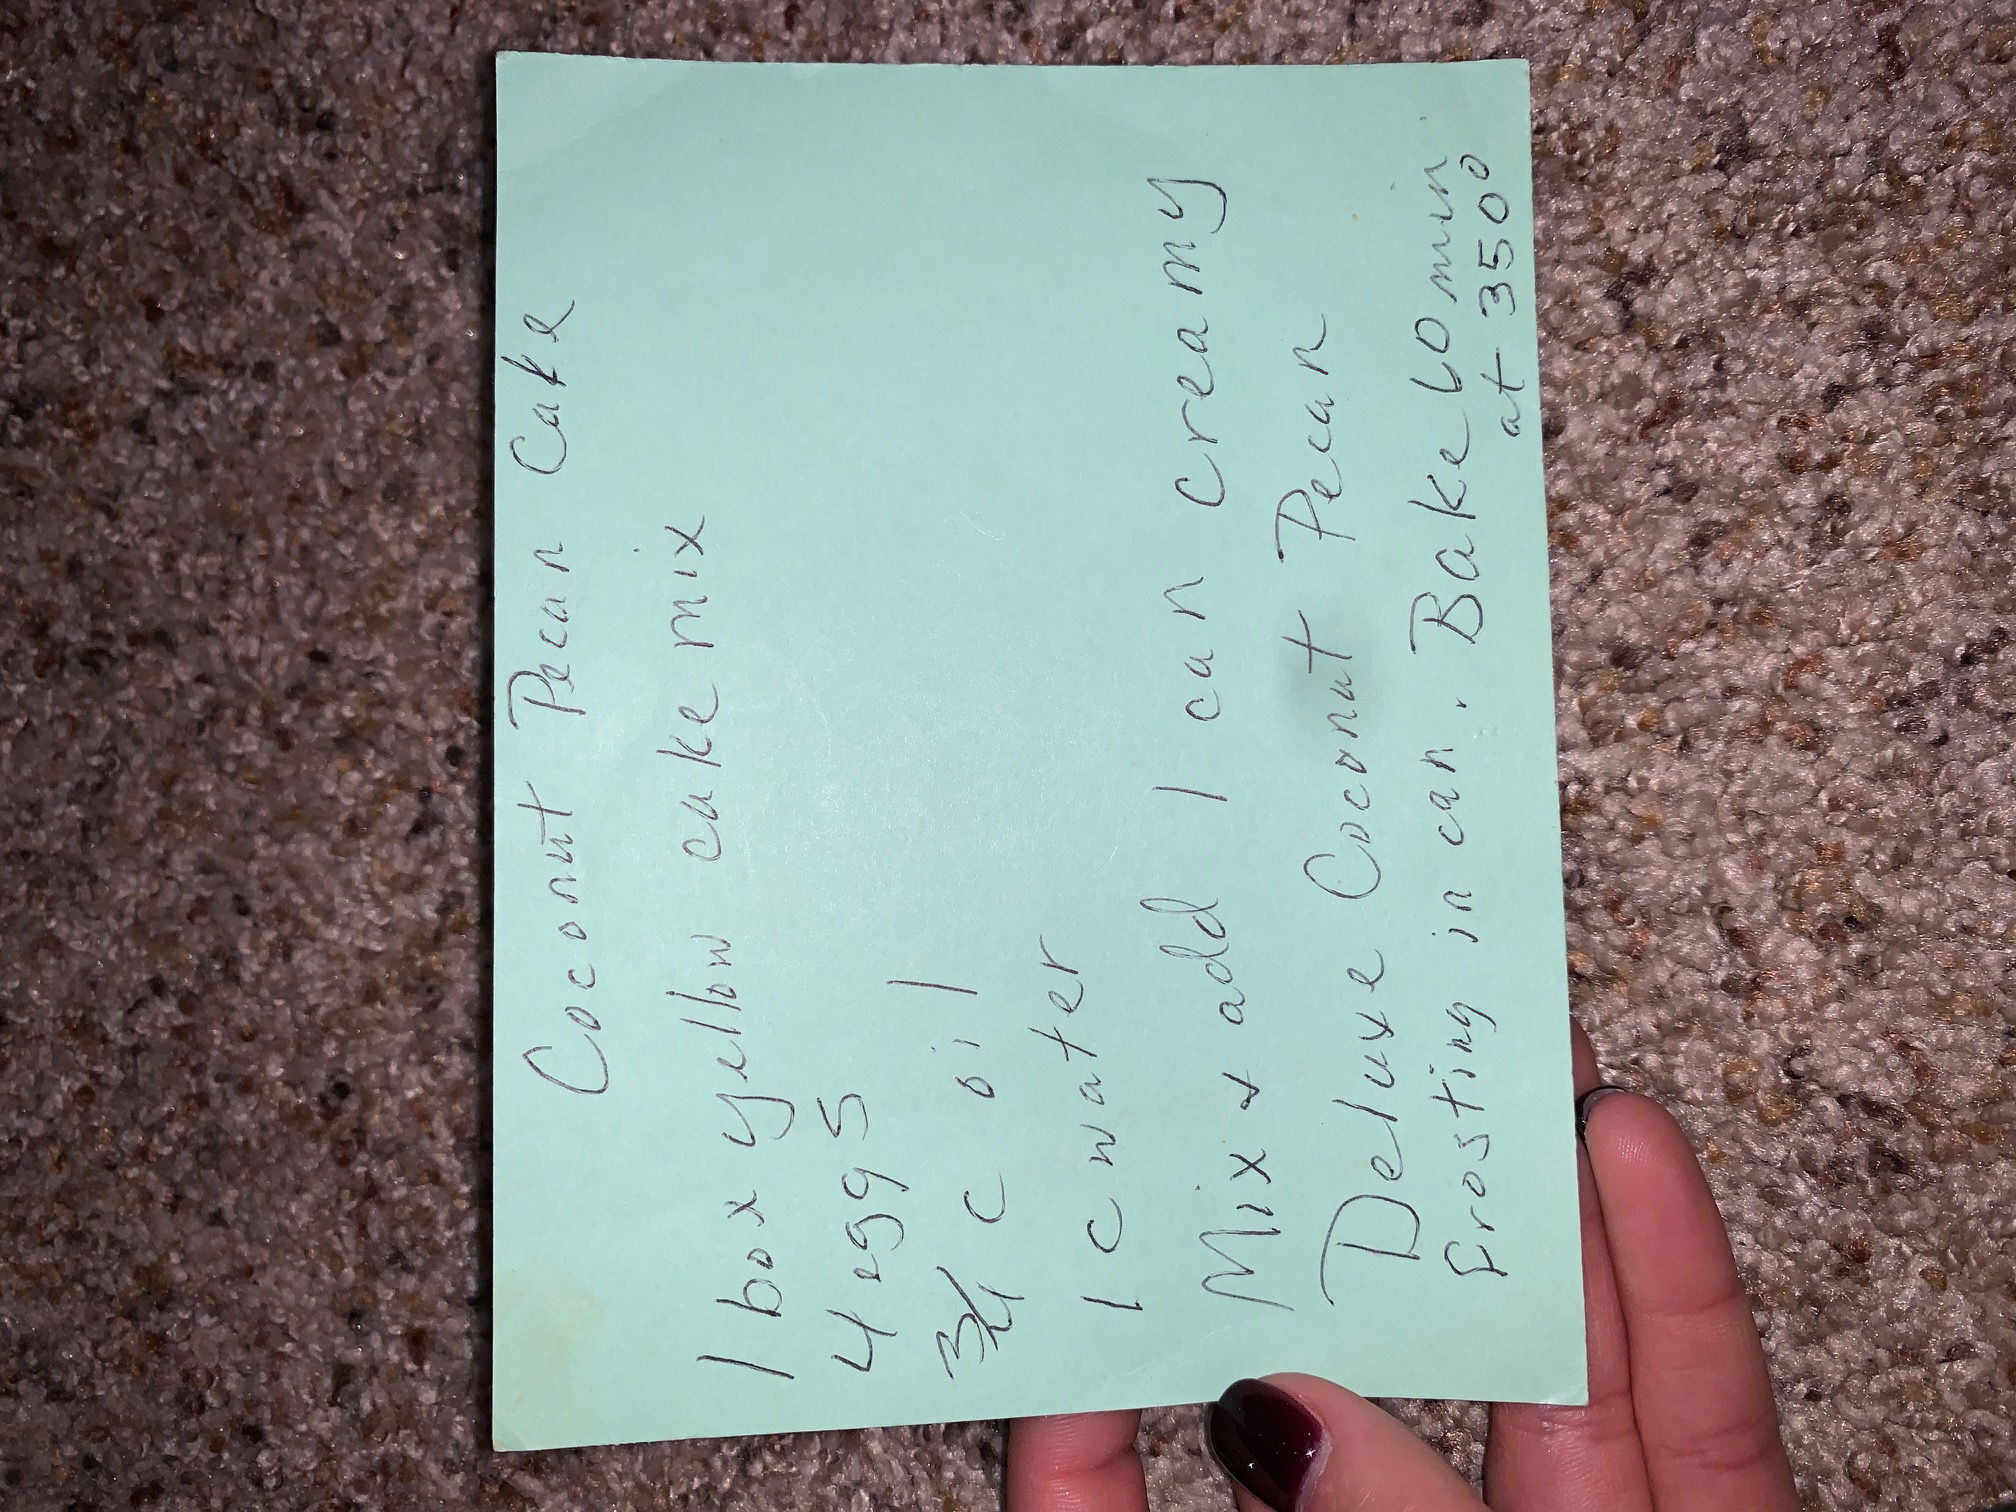 Coconut Pecan Cake
1 box yellow cake mix
4 eggs
3/4 c oil
1 c water
Mix & add 1 can creamy
Deluxe Coconut Pecan
frosting in can. Bake 60 min.
at 350°